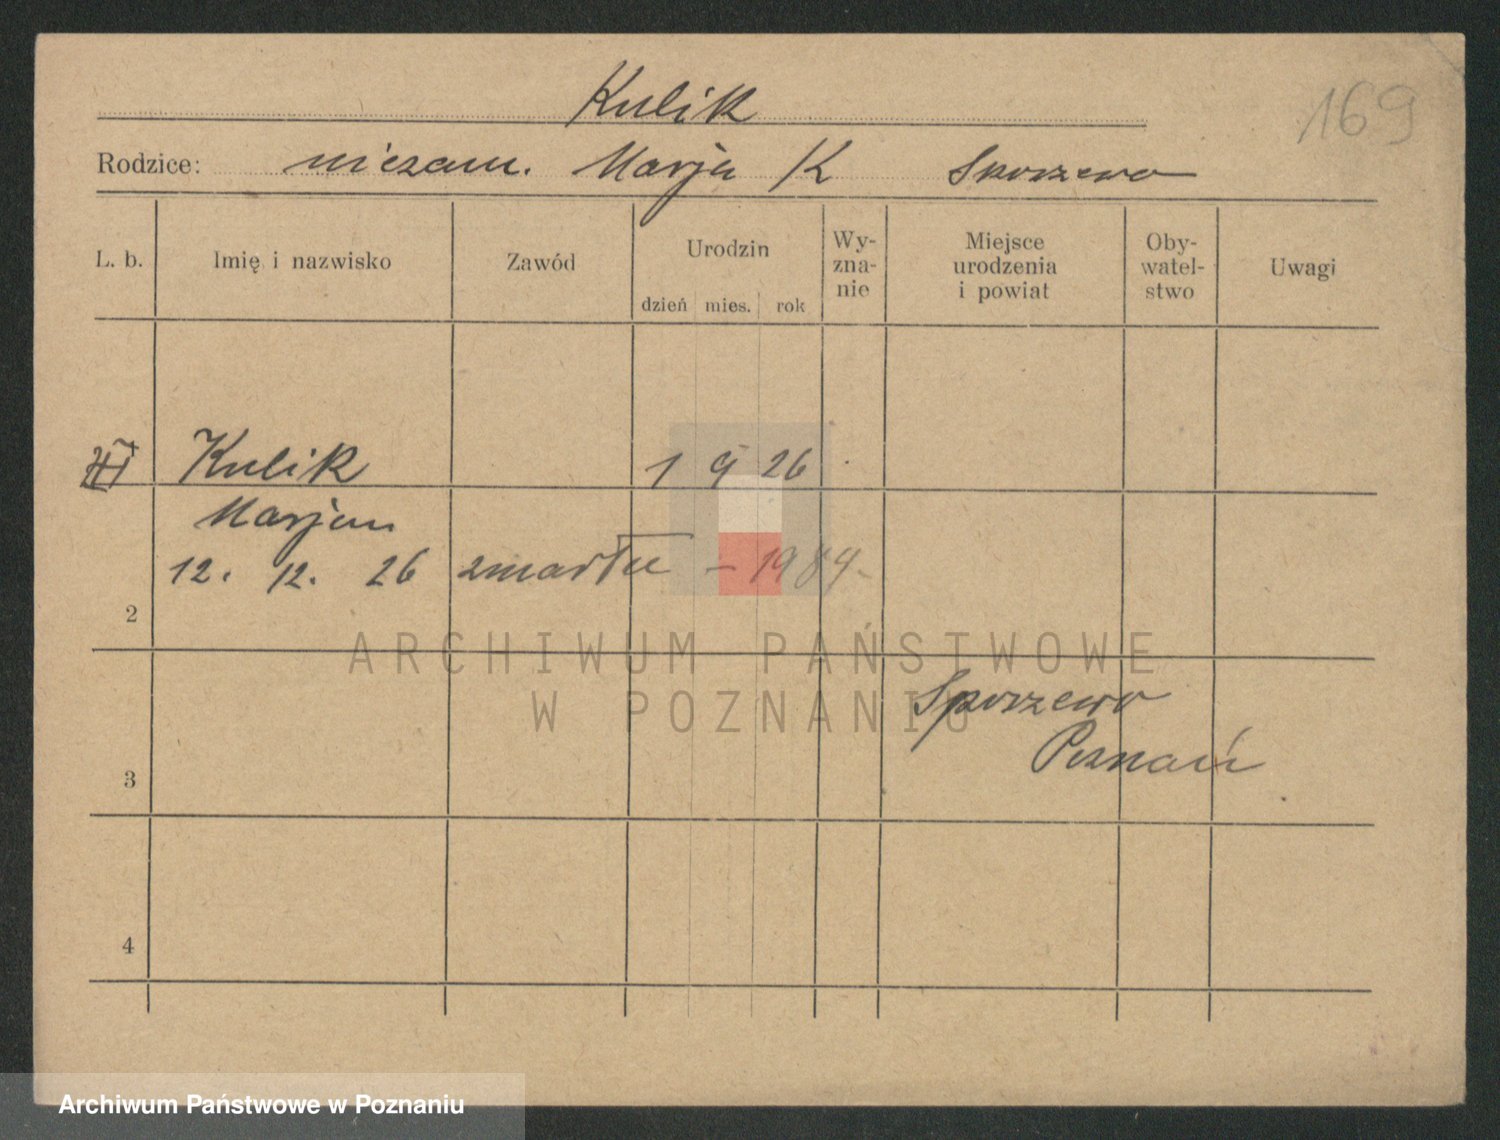 Kulik
169
Rodzice: niezam. Marja K
L. b. Imię i nazwisko Zawód Urodzin dzień mies. rok Wy-zna-nie Miejsce urodzenia i powiat Oby-watel-stwo Uwagi
Kulik 1 9 26
Marjan
12. 12. 26 zmarł
2
ARCHIWUM PAŃSTWOWE
W POZNANIU
Poznań
3
4
Archiwum Państwowe w Poznaniu